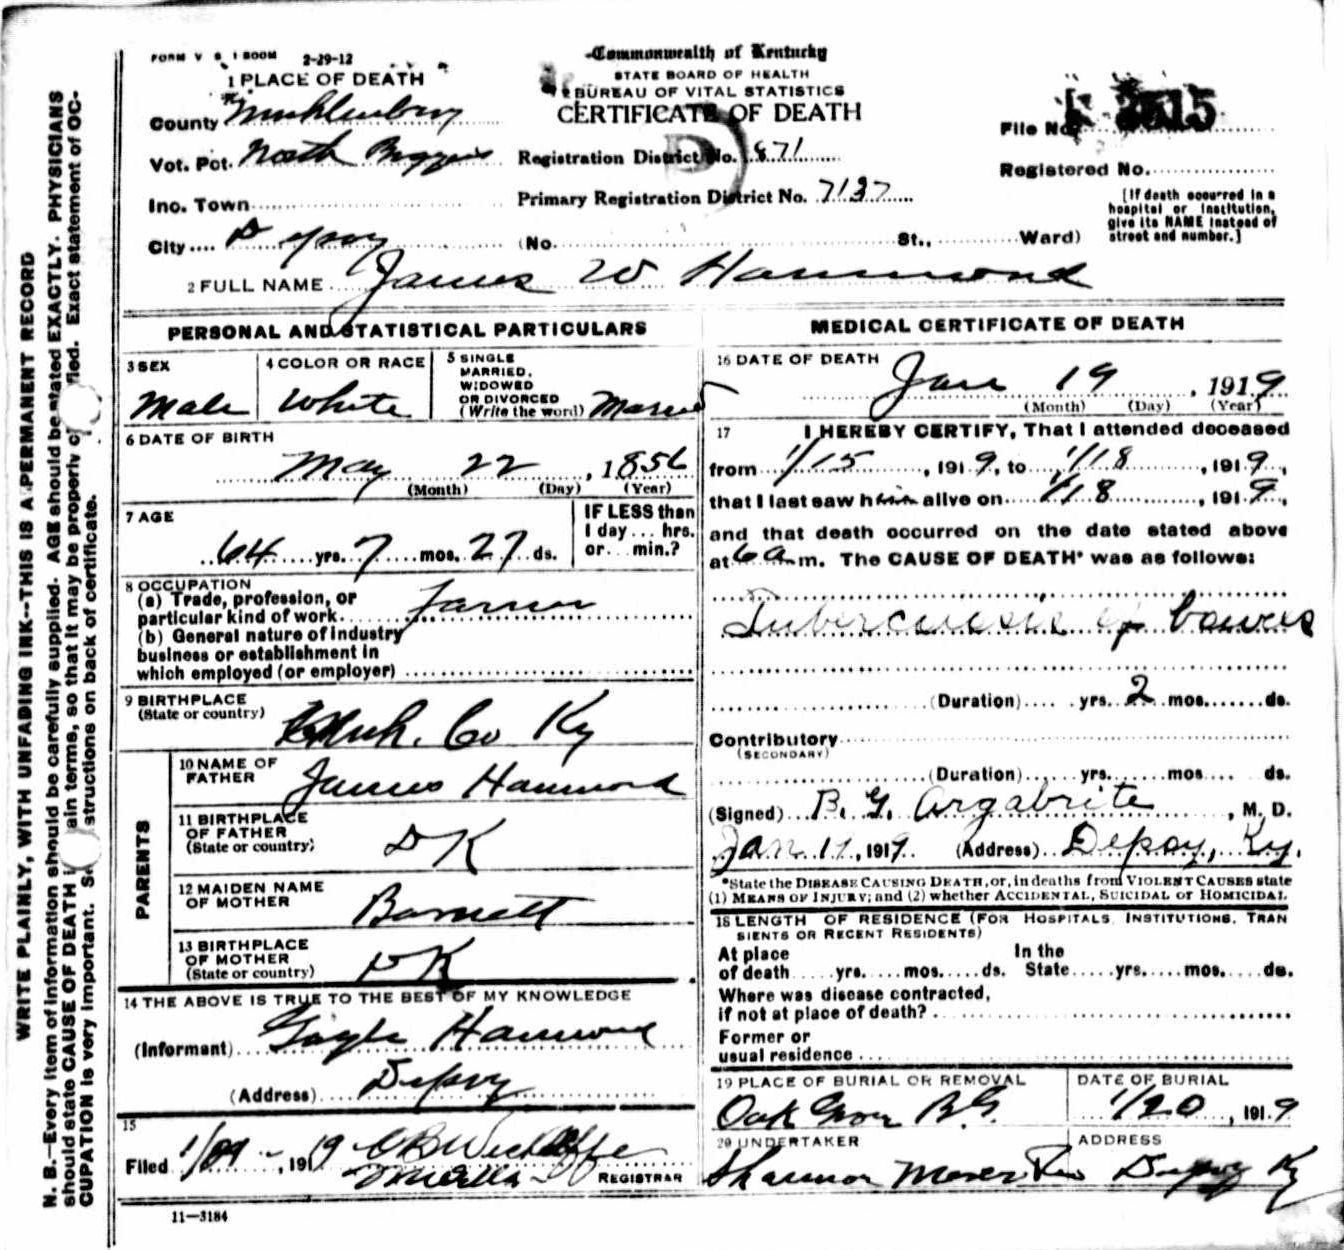 FORM V S 1 500M 2-29-12
Commonwealth of Kentucky
STATE BOARD OF HEALTH
BUREAU OF VITAL STATISTICS
CERTIFICATE OF DEATH
1 PLACE OF DEATH
County Muhlenburg
Vot. Pct. North
Inc. Town
City Depoy
Registration District No. 871
Primary Registration District No. 7137
(No. St., Ward)
File No. 3515
Registered No.
[If death occurred in a
hospital or institution,
give its NAME instead of
street and number.]
2 FULL NAME James W Hammond
PERSONAL AND STATISTICAL PARTICULARS
3 SEX
Male
4 COLOR OR RACE
White
5 SINGLE
MARRIED,
WIDOWED
OR DIVORCED
(Write the word) Married
6 DATE OF BIRTH
May 22, 1856
(Month) (Day) (Year)
7 AGE
64 yrs. 7 mos. 27 ds.
IF LESS than
1 day... hrs.
or... min.?
8 OCCUPATION
(a) Trade, profession, or
particular kind of work. Farmer
(b) General nature of industry
business or establishment in
which employed (or employer)
9 BIRTHPLACE
(State or country) Muh. Co Ky
PARENTS
10 NAME OF
FATHER James Hammond
11 BIRTHPLACE
OF FATHER
(State or country) DK
12 MAIDEN NAME
OF MOTHER Barnett
13 BIRTHPLACE
OF MOTHER
(State or country) DK
14 THE ABOVE IS TRUE TO THE BEST OF MY KNOWLEDGE
(Informant) Gayle Hammond
(Address) Depoy
15
Filed 1/ , 1919
REGISTRAR
11—3184
MEDICAL CERTIFICATE OF DEATH
16 DATE OF DEATH
Jan 19, 1919
(Month) (Day) (Year)
17 I HEREBY CERTIFY, That I attended deceased
from 1/15, 1919, to 1/18, 1919,
that I last saw him alive on 1/18, 1919,
and that death occurred on the date stated above
at 6 a m. The CAUSE OF DEATH* was as follows:
Tuberculosis of bowels
(Duration) yrs. 2 mos. ds.
Contributory
(SECONDARY)
(Duration) yrs. mos. ds.
(Signed) B. G. Argabrite, M. D.
Jan 19, 1919. (Address) Depoy, Ky.
*State the DISEASE CAUSING DEATH, or, in deaths from VIOLENT CAUSES state
(1) MEANS OF INJURY; and (2) whether ACCIDENTAL, SUICIDAL or HOMICIDAL.
18 LENGTH OF RESIDENCE (FOR HOSPITALS, INSTITUTIONS, TRAN
SIENTS OR RECENT RESIDENTS)
At place In the
of death yrs. mos. ds. State yrs. mos. ds.
Where was disease contracted,
if not at place of death?
Former or
usual residence
19 PLACE OF BURIAL OR REMOVAL
Oak Grove B.G.
DATE OF BURIAL
1/20, 1919
20 UNDERTAKER
Shannon
ADDRESS
Depoy Ky
WRITE PLAINLY, WITH UNFADING INK--THIS IS A PERMANENT RECORD
N. B.—Every item of information should be carefully supplied. AGE should be stated EXACTLY. PHYSICIANS
should state CAUSE OF DEATH ain terms, so that it may be properly fied. Exact statement of OC-
CUPATION is very important. structions on back of certificate.